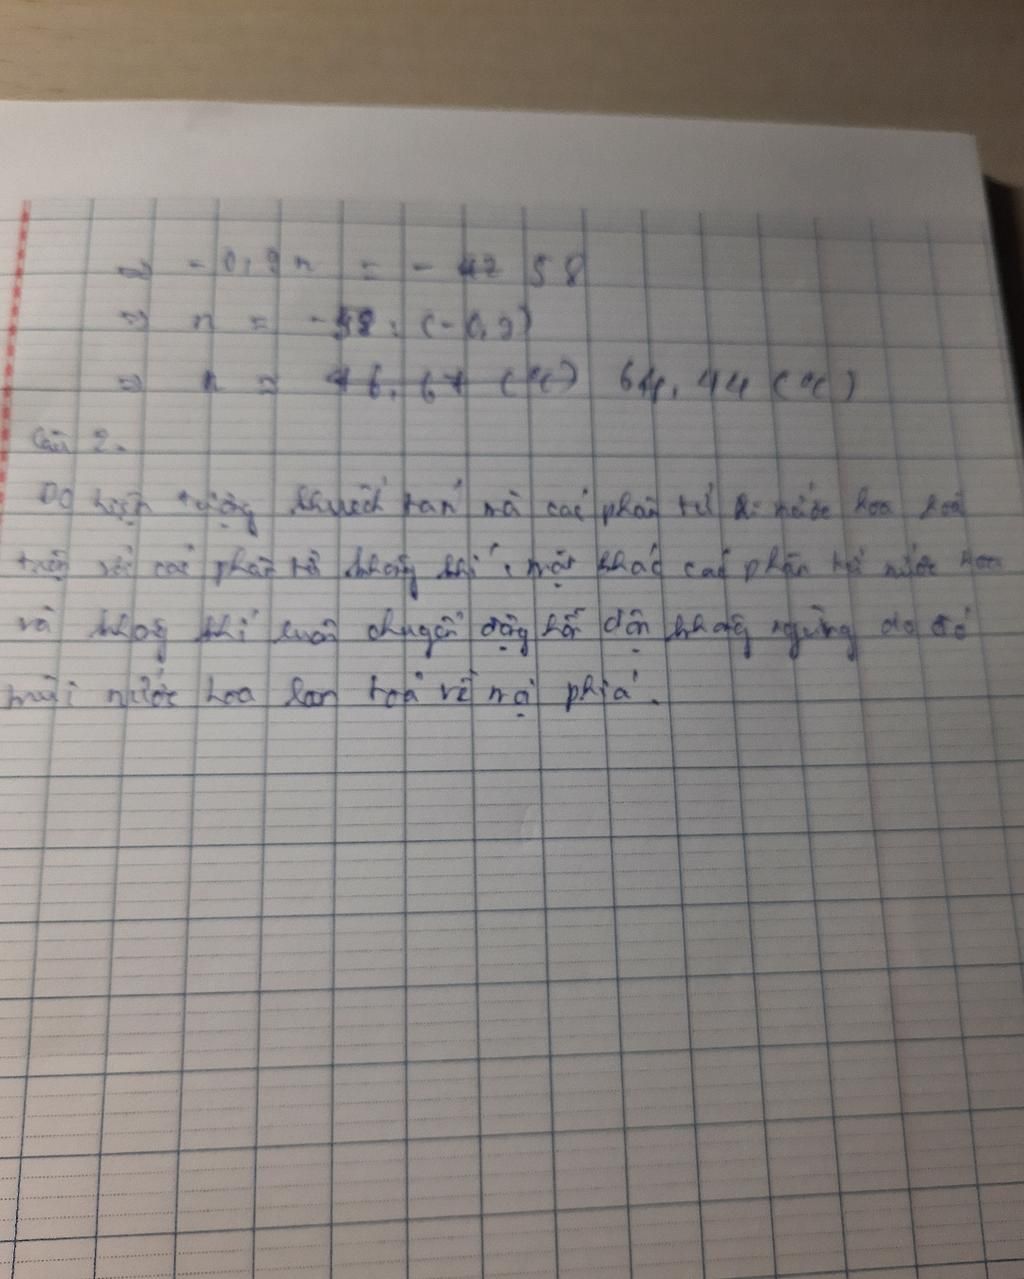 => - 0,9 n = - 42 58
=> n = -58 : (-0,9)
=> n = 46,67 (%) 64,44 (%)
Câu 2.
Do hiện tượng khuếch tán mà các phân tử nước hoa hoà
trộn với các phân tử không khí, mặt khác các phân tử nước hoa
và không khí luôn chuyển động hỗn độn không ngừng do đó
mùi nước hoa lan toả về mọi phía.